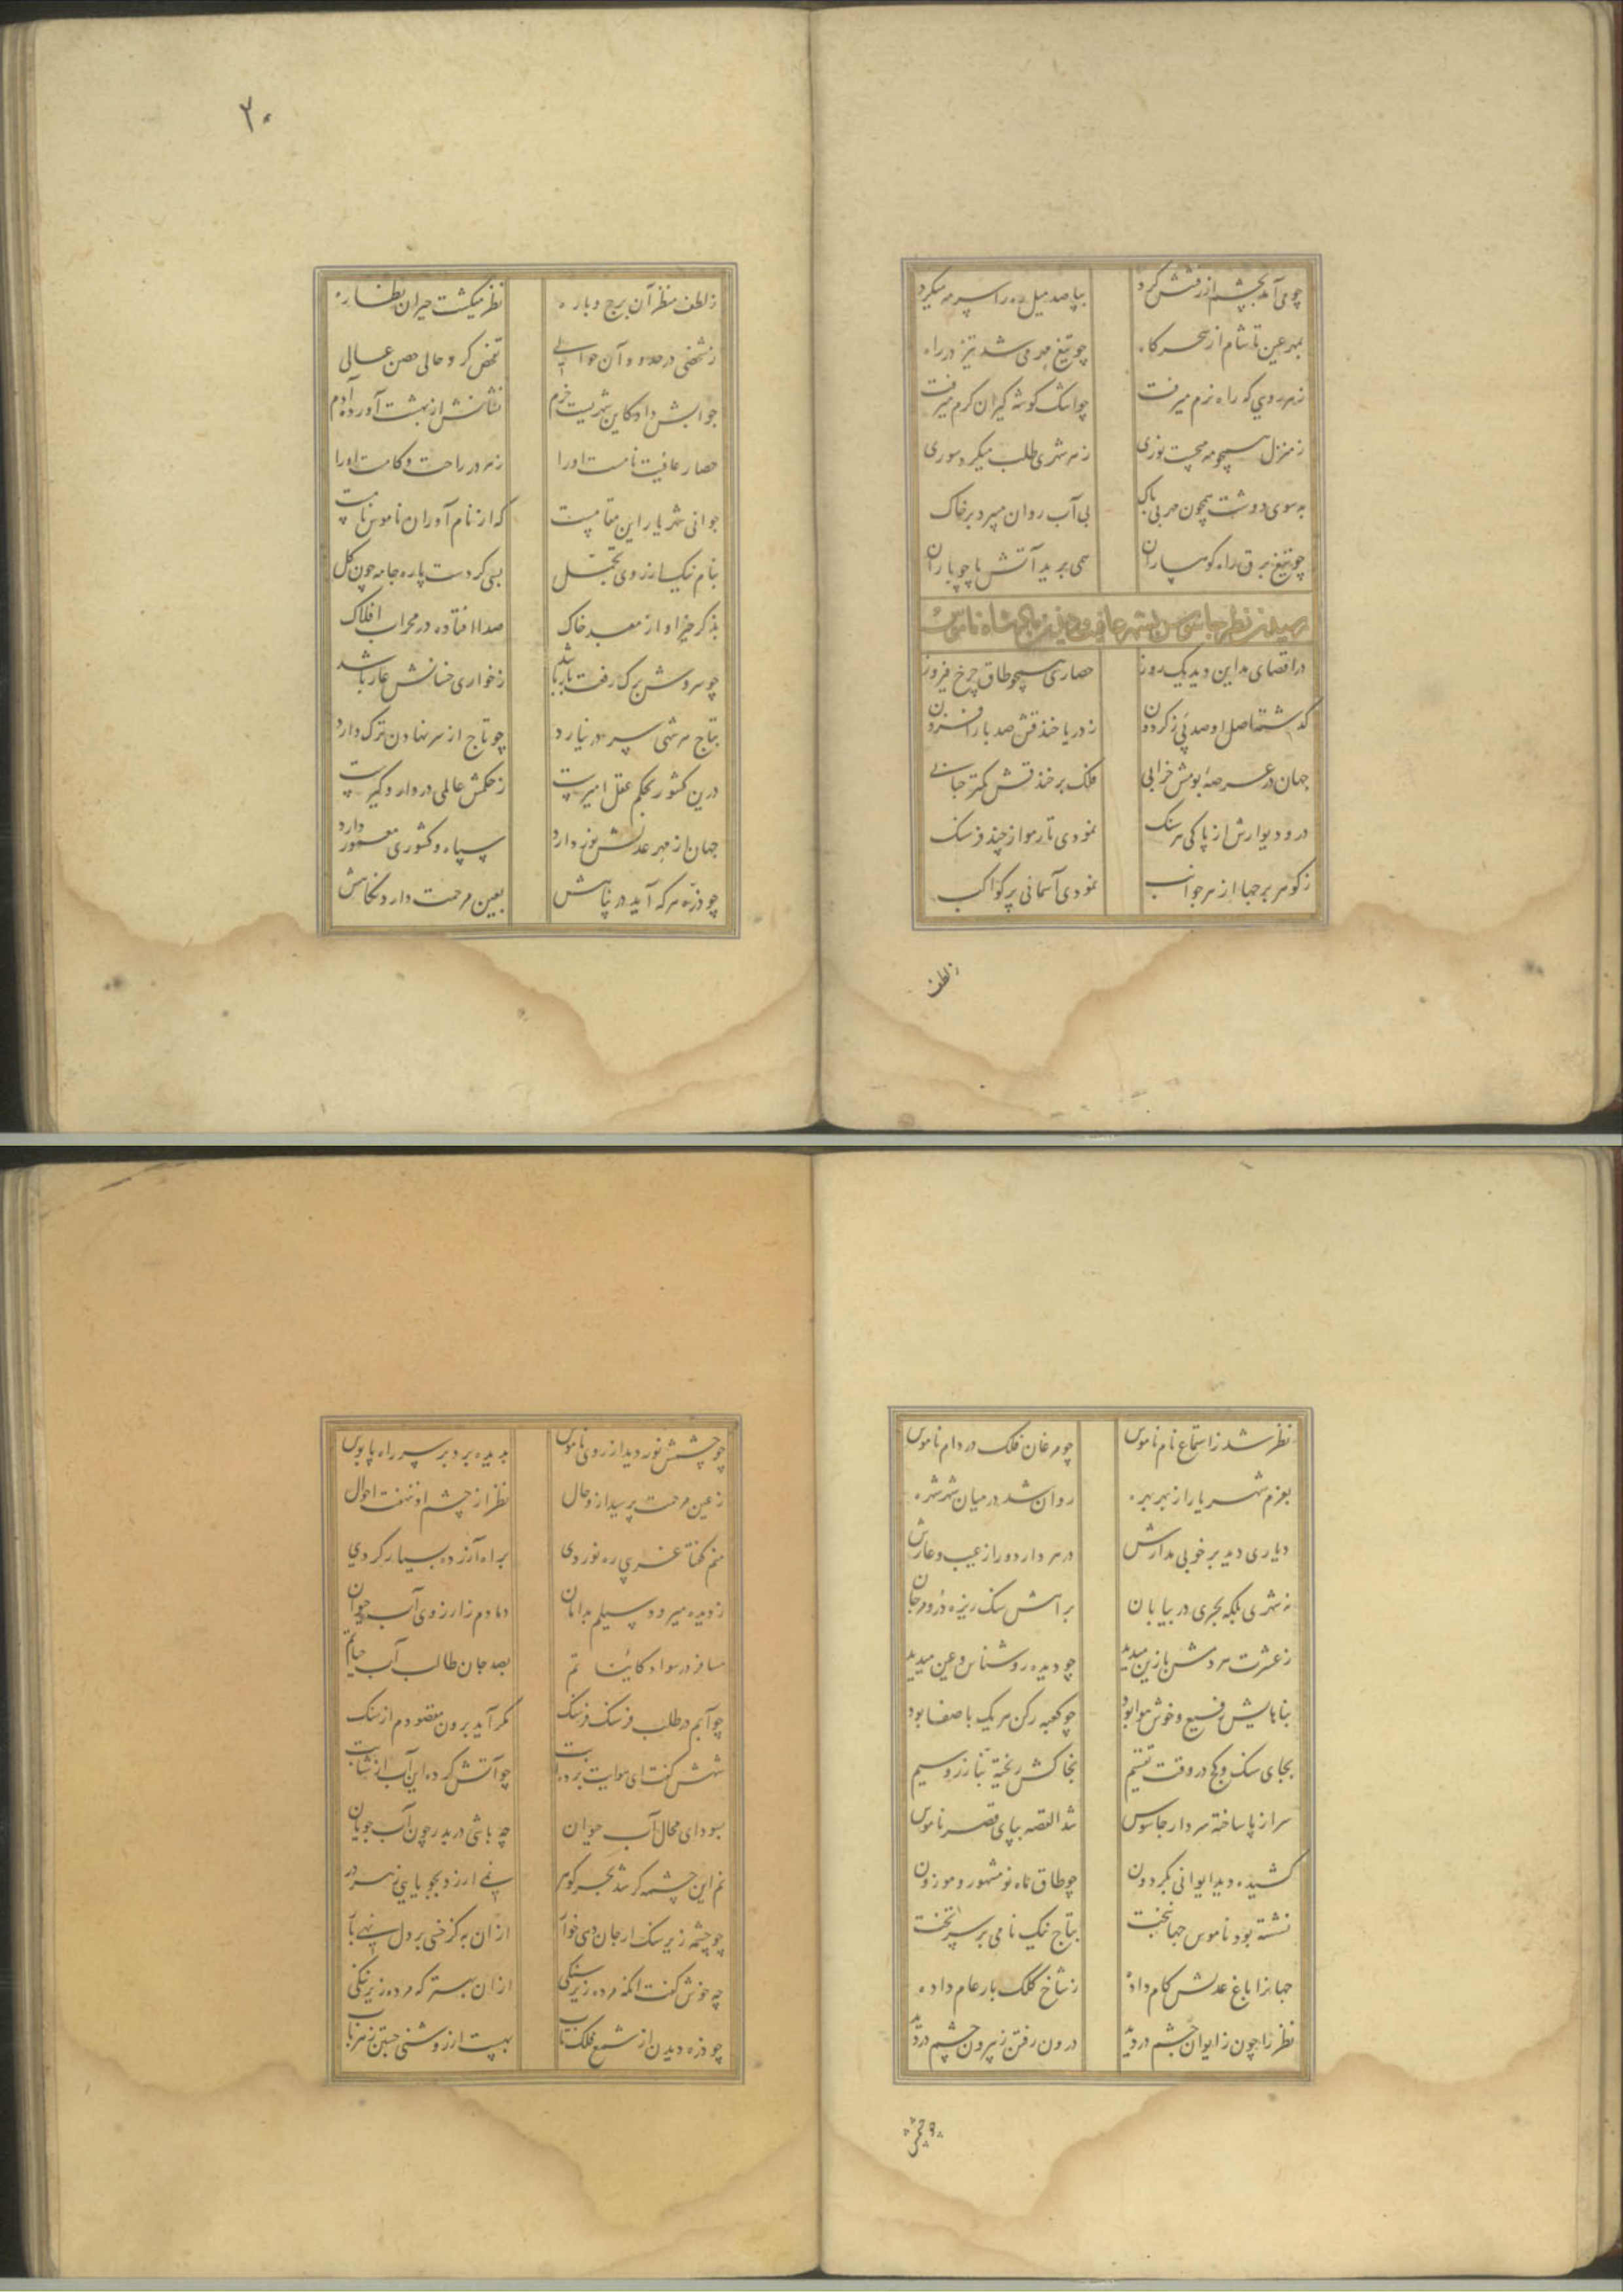 چو می آمد بچشم از رفتنش کرد    بپا صد میل ره را سرمه میکرد
بمهر عین تا شام از سحرکاه    چو تیغ مهر می شد تیز در راه
زهر رویی که راه نرم میرفت    چو اشک کوشه کیران کرم میرفت
ز منزل همچو مه میجست نوری    ز هر شهری طلب میکرد سوری
بهر سوی دوشت همچون مهر بی باک    بی آب روان میبرد بر خاک
چو تیغ برق راه کوهساران    همی برید آتش پا چو باران
رسیدن نظر جاسوس بشهر عافیت و دیدن شاه ناموس
در اقصای مداین دید یک روز    حصاری همچو طاق چرخ فیروز
کذشته اصل او صد پی ز کردون    ز دریا خندقش صد بار افزون
جهان در عرصهٔ بومش خرابی    فلک بر خندقش کمتر حبابی
در و دیوارش از پاکی هر سنک    نمودی تار مو از چند فرسنک
ز کوهر برجها از هر جوانب    نمودی آسمانی پر کواکب
زلطف
۲۰
ز لطف منظر آن برج و باره    نظر میکشت حیران نظاره
ز شخصی در حدود آن حوالی    تفحص کرد حالی حصن عالی
جوابش داد کاین شهریست خرم    نشانش از بهشت آورده آدم
حصار عافیت نامست او را    ز هر در راحت و کامست او را
جوانی شهریار این مقامست    که از نام آوران ناموس نامست
بنام نیک از روی تجمل    بسی کردست پاره جامه چون کل
بذکر خیر او از معبد خاک    صدا افتاده در محراب افلاک
چو سروش برک رفت بار باشد    ز خواری خسانش عار باشد
بتاج هر شهی سر در نیارد    چو تاج از سر نهادن ترک دارد
درین کشور بحکم عقل امیرست    ز حکمش عالمی در دار و کیرست
جهان از مهر عدلش نور دارد    سپاه و کشوری معمور دارد
چو ذره هر که آید در پناهش    بعین مرحمت دارد نکاهش
نظر شد ز استماع نام ناموس    چو مرغان فلک در دام ناموس
بعزم شهریار از بهر بهره    روان شد در میان شهر شهره
دیاری دید بر خوبی مدارش    در هر دار دور از عیب و عارش
نه شهری بلکه بحری در بیابان    براهش سنک ریزه در و مرجان
ز عشرت مردمش نازین میدید    چو دیده روشناس و عین میدید
بناهایش وسیع و خوش هوا بود    چو کعبه رکن هر یک با صفا بود
بجای سنک و کچ در وقت تقسیم    بخاکش ریخته بنا زر و سیم
سر از پا ساخته سردار جاسوس    شد القصه بپای قصر ناموس
کشیده دید ایوانی بکردون    چو طاق ماه نو مشهور و موزون
نشسته بود ناموس جهانبخت    بتاج نیک نامی بر سر تخت
جهانرا باغ عدلش کام داده    ز شاخ کلک بار عام داده
نظر را چون ز ایوان چشم در دید    درون رفتن ز بیرون چشم در دید
چو چشمش
چو چشمش نور دید از روی ناموس    بدیده برد بر سر راه پابوس
ز عین مرحمت پرسید از و حال    نظر از چشم او ننهفت احوال
منم کفتا غریبی ره نوردی    براه آرزو بسیار کردی
ز دیده میرود سیلم بدامان    دمادم ز ارزوی آب حیوان
مسافر در سواد کایناتم    بصد جان طالب آب حیاتم
چو آبم در طلب فرسنک فرسنک    مکر آید برون مقصودم از سنک
شهش کفت ای هوایت برده از    چو آتش کرده این آب از شتابت
بسودای محال آب حیوان    چه باشی در بدر چون آب جویان
نم این چشمه کر شد بحر کوهر    نمی ارزد بجویایی ز هر در
چو چشمه زیر سنک ار جان دهی خوار    از ان به کز خسی بر دل نهی بار
چه خوش کفت انکه مرده زیر سنکی    از ان بهتر که مرده زیر ننکی
چو ذره دیدن از شمع فلک تاب    بهست از روشنی جستن ز مهتاب